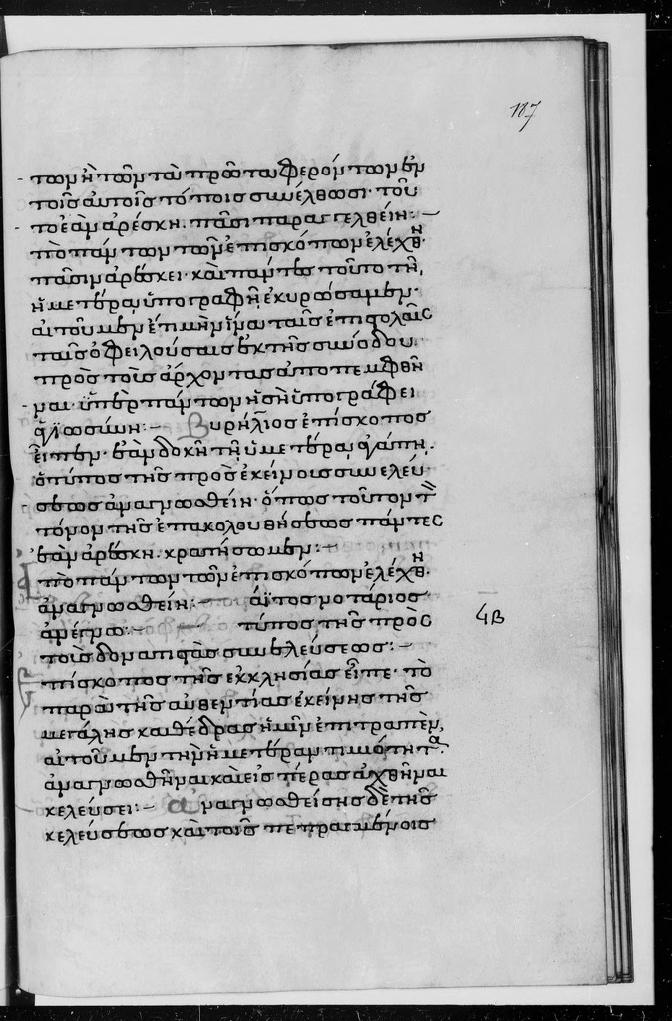 187
των ἢ τῶν τὰ πρῶτα φερόντων ἐν
τοῖς αὐτοῖς τόποις συνέλθωσι· τοῦ
το ἐὰν ἀρέσκη. πᾶσι παραγγελθείη:—
πὸ πάντων τῶν ἐπισκόπων ἐλέχθη·
πᾶσιν ἀρέσκει· καὶ πάντες τοῦτο τῆ
ἡμετέρα ὑπογραφῆ ἐκυρώσαμεν·
αἰτοῦμεν ἔτι μὴν ἵνα ταῖς ἐπιστολαῖς
ταῖς ὀφειλούσαις ἐκ τῆς συνόδου
πρὸς τοὺς ἄρχοντας ἀποπεμφθῆ
ναι· ὑπὲρ πάντων ἡ σὴ ὑπογράφει
ἁγιωσύνη:— Βυρήλιος ἐπίσκοπος
εἶπεν· ἐὰν δοκῆ τῆ ὑμετέρα ἀγάπη.
ὁ τύπος τῆς πρὸς ἐκείνους συνελεύ
σεως ἀναγνωσθείη· ὅπως τοῦτον τὸν
τόνον τῆς ἐπακολουθήσεως πάντες
ἐὰν ἀρέσκη. κρατήσωμεν:—
πὸ πάντων τῶν ἐπισκόπων ἐλέχθη·
ἀναγνωσθείη:— αῖτος νοτάριος
ἀνέγνω:— τύπος τῆς πρὸς
τοὺς δονατιστὰς συνελεύσεως:—
πίσκοπος τῆς ἐκκλησίας εἶπε· τὸ
παρὰ τῆς αὐθεντίας ἐκείνης τῆς
μεγάλης καθέδρας ἡμῖν ἐπιτραπὲν,
αἰτοῦμεν τὴν ἡμετέραν τιμιότητα
ἀναγνωσθῆναι καὶ εἰς πέρας ἀχθῆναι
κελεύσει:— ἀναγνωσθείσης δὲ τῆς
κελεύσεως καὶ τοῖς πεπραγμένοις